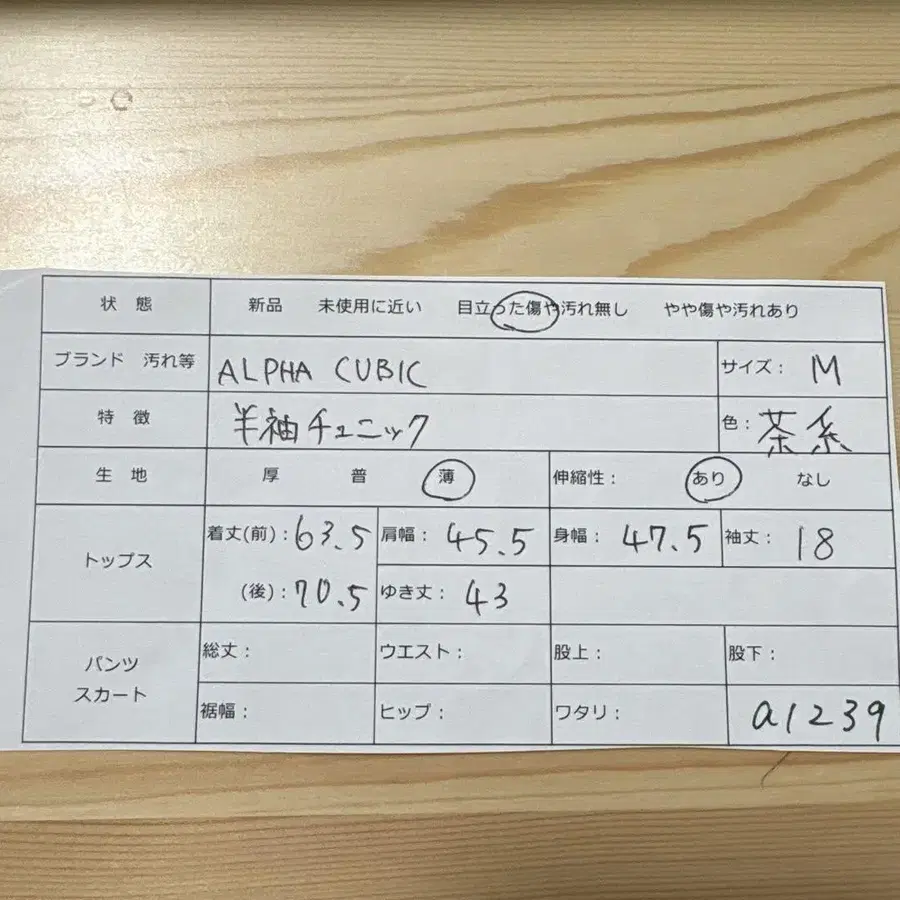 状 態 新品 未使用に近い 目立った傷や汚れ無し やや傷や汚れあり
ブランド 汚れ等 ALPHA CUBIC サイズ： M
特 徴 半袖チュニック 色： 茶系
生 地 厚 普 薄 伸縮性： あり なし
トップス 着丈(前)： 63.5 肩幅： 45.5 身幅： 47.5 袖丈： 18
(後)： 70.5 ゆき丈： 43
パンツ スカート 総丈： ウエスト： 股上： 股下：
裾幅： ヒップ： ワタリ： a1239